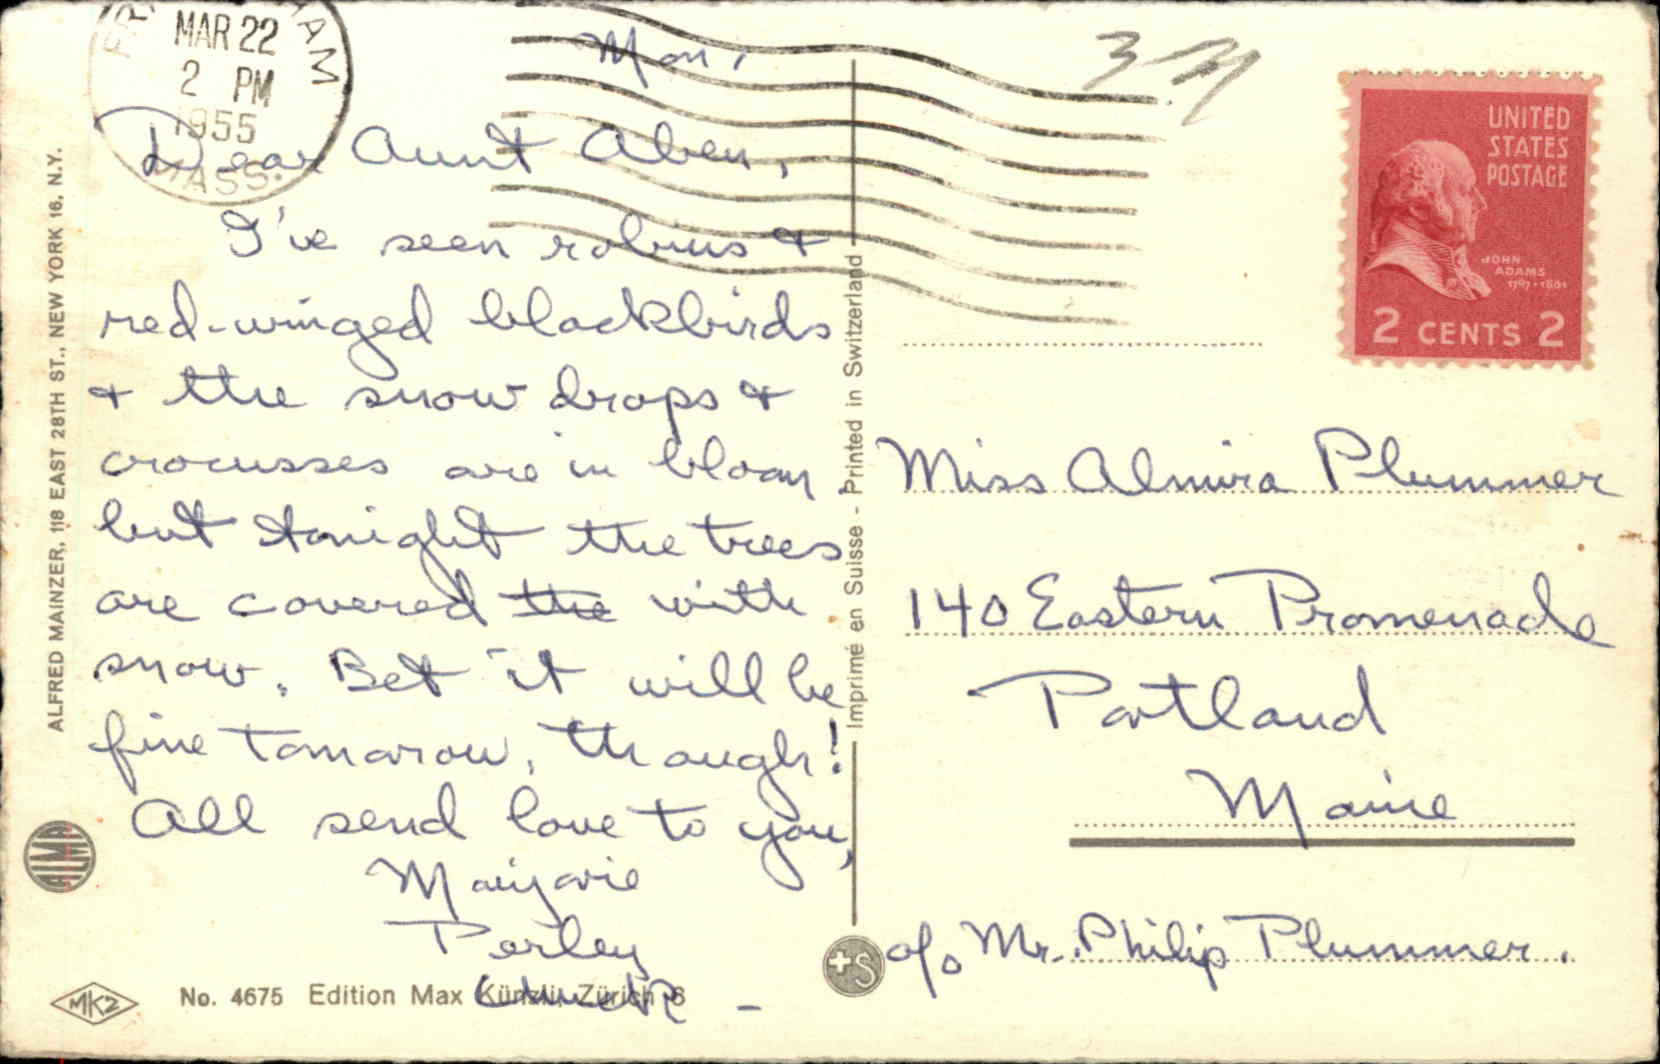 MAR 22
2 PM
1955
MASS.
Mon.
Dear Aunt Aben,
I've seen robins &
red-winged blackbirds
& the snow drops &
crocusses are in bloom
but tonight the trees
are covered the with
snow. Bet it will be
fine tomorow, though!
All send love to you,
Marjorie
Perley
Chuck -
ALFRED MAINZER, 118 EAST 28TH ST., NEW YORK 16, N.Y.
ALMA
MKZ
No. 4675 Edition Max Künzli, Zürich 6
Imprimé en Suisse - Printed in Switzerland
+S
UNITED
STATES
POSTAGE
JOHN
ADAMS
1797-1801
2 CENTS 2
Miss Almira Plummer
140 Eastern Promenade
Portland
Maine
c/o Mr. Philip Plummer.